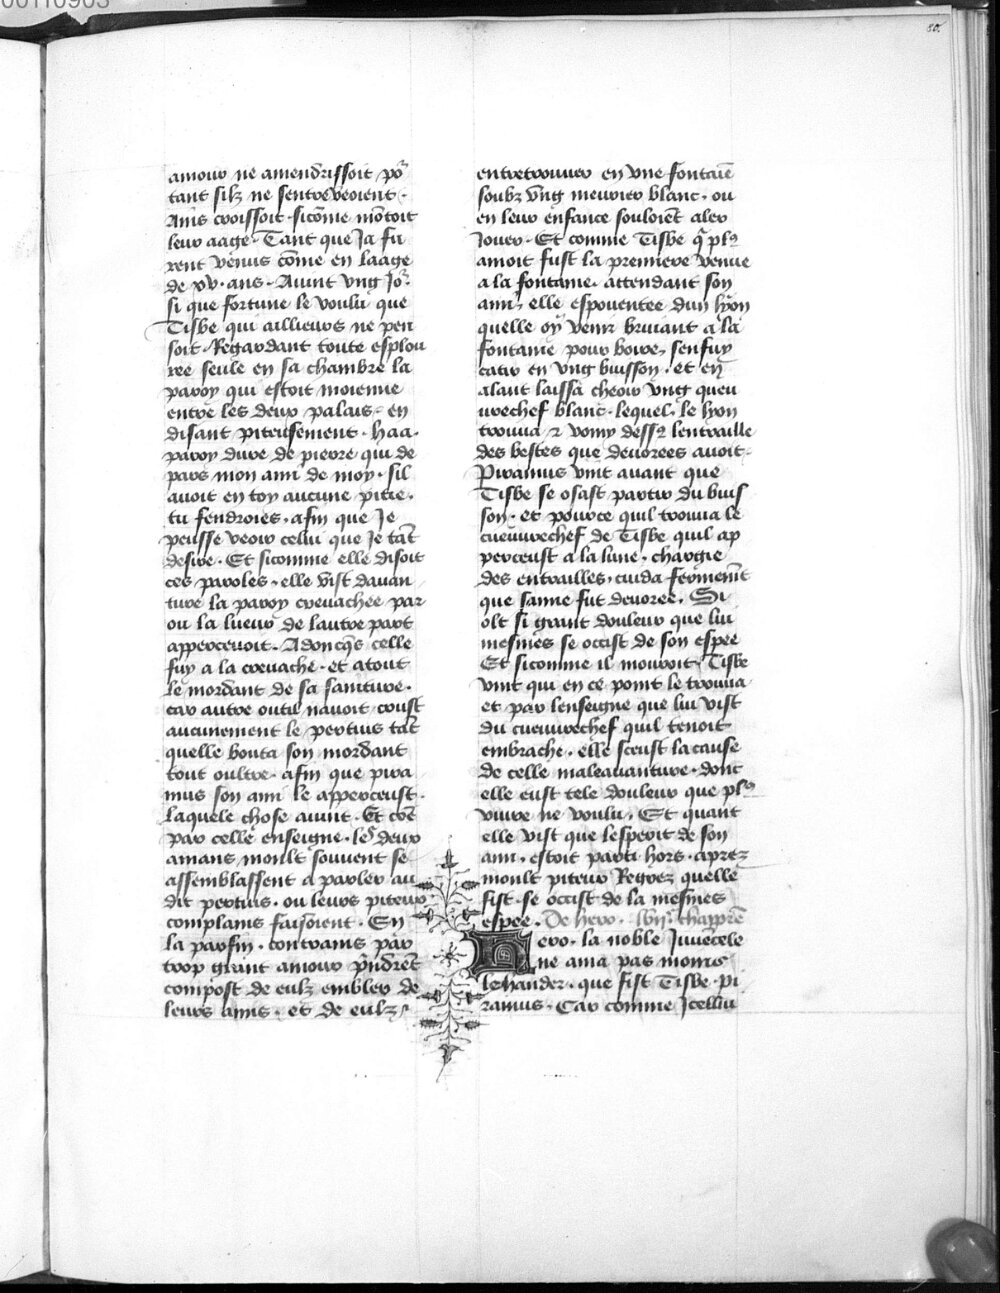 80.
amour ne amendrissoit poᷣ
tant silz ne sentreveoient.
Ains croissoit. sicōme mōtoit
leur aage. Tant que Ja fu
rent venus cōme en laage
de xv. ans. Avint ung Jor
si que fortune le voulu que
Tisbe qui ailleurs ne pen
soit. Regardant toute esplou
ree seule en sa chambre la
paroy qui estoit moienne
entre les deux palais. en
disant piteusement. haa.
paroy dure de pierre qui de
pars mon ami de moy. sil
avoit en toy aucune pitie.
tu fendroies. afin que Je
peusse veoir celui que Je tāt
desire. Et sicomme elle disoit
ces paroles. elle vist davan
ture la paroy crevachee par
ou la lueur de lautre part
appercevoit. Adoncq̄s celle
fuy a la crevache. et atout
le mordant de sa sainture.
car autre outil navoit. coust
aucunement le pertuis tāt
quelle bouta son mordant
tout oultre. afin que pira
mus son ami le apperceust.
laquele chose avint. Et cōe
par celle enseigne. les deux
amans moult souvent se
assemblassent a parler au
dit pertuis. ou leurs piteux
complains faisoient. En
la parfin. contrains par
trop grant amour p̄ndrēt
compost de eulz embler de
leurs amis. et de eulz
entretrouver en une fontaīe
soubz ung meurier blanc. ou
en leur enfance souloiēt aler
Jouer. Et comme Tisbe q̄ plꝰ
amoit fust la premiere venue
a la fontaine. attendant son
ami, elle espouentee dun lyon
quelle oy venir bruiant a la
fontaine pour boire, senfuy
tatir en ung buisson. et en
alant laissa cheoir ung queu
vrechef blanc. lequel. le lyon
trouva ⁊ vomy dessꝰ lentraille
des bestes que devorees avoit.
Piramus vint avant que
Tisbe se osast partir du buis
son. et pource quil trouva le
cueuvrechef de Tisbe quil ap
perceust a la lune, chargie
des entrailles, cuida fermemēt
que samie fut devoree. Si
olt si grant douleur que lui
mesmes se occist de son espee
Et sicomme il mouroit. Tisbe
vint qui en ce point le trouva
et par lenseigne que lui vist
du cueuvrechef quil tenoit
embrache. elle sceust la cause
de celle maleavanture. dont
elle eust tele douleur que plꝰ
vivre ne voulu. Et quant
elle vist que lesperit de son
ami. estoit parti hors. aprez
moult piteux Regrez quelle
fist. se occist de la mesmes
espee. De hero. lviij. chappitre
Hero. la noble Juvēcele
ne ama pas moins
lehander. que fist Tisbe. pi
ramus. Car comme Jcellui